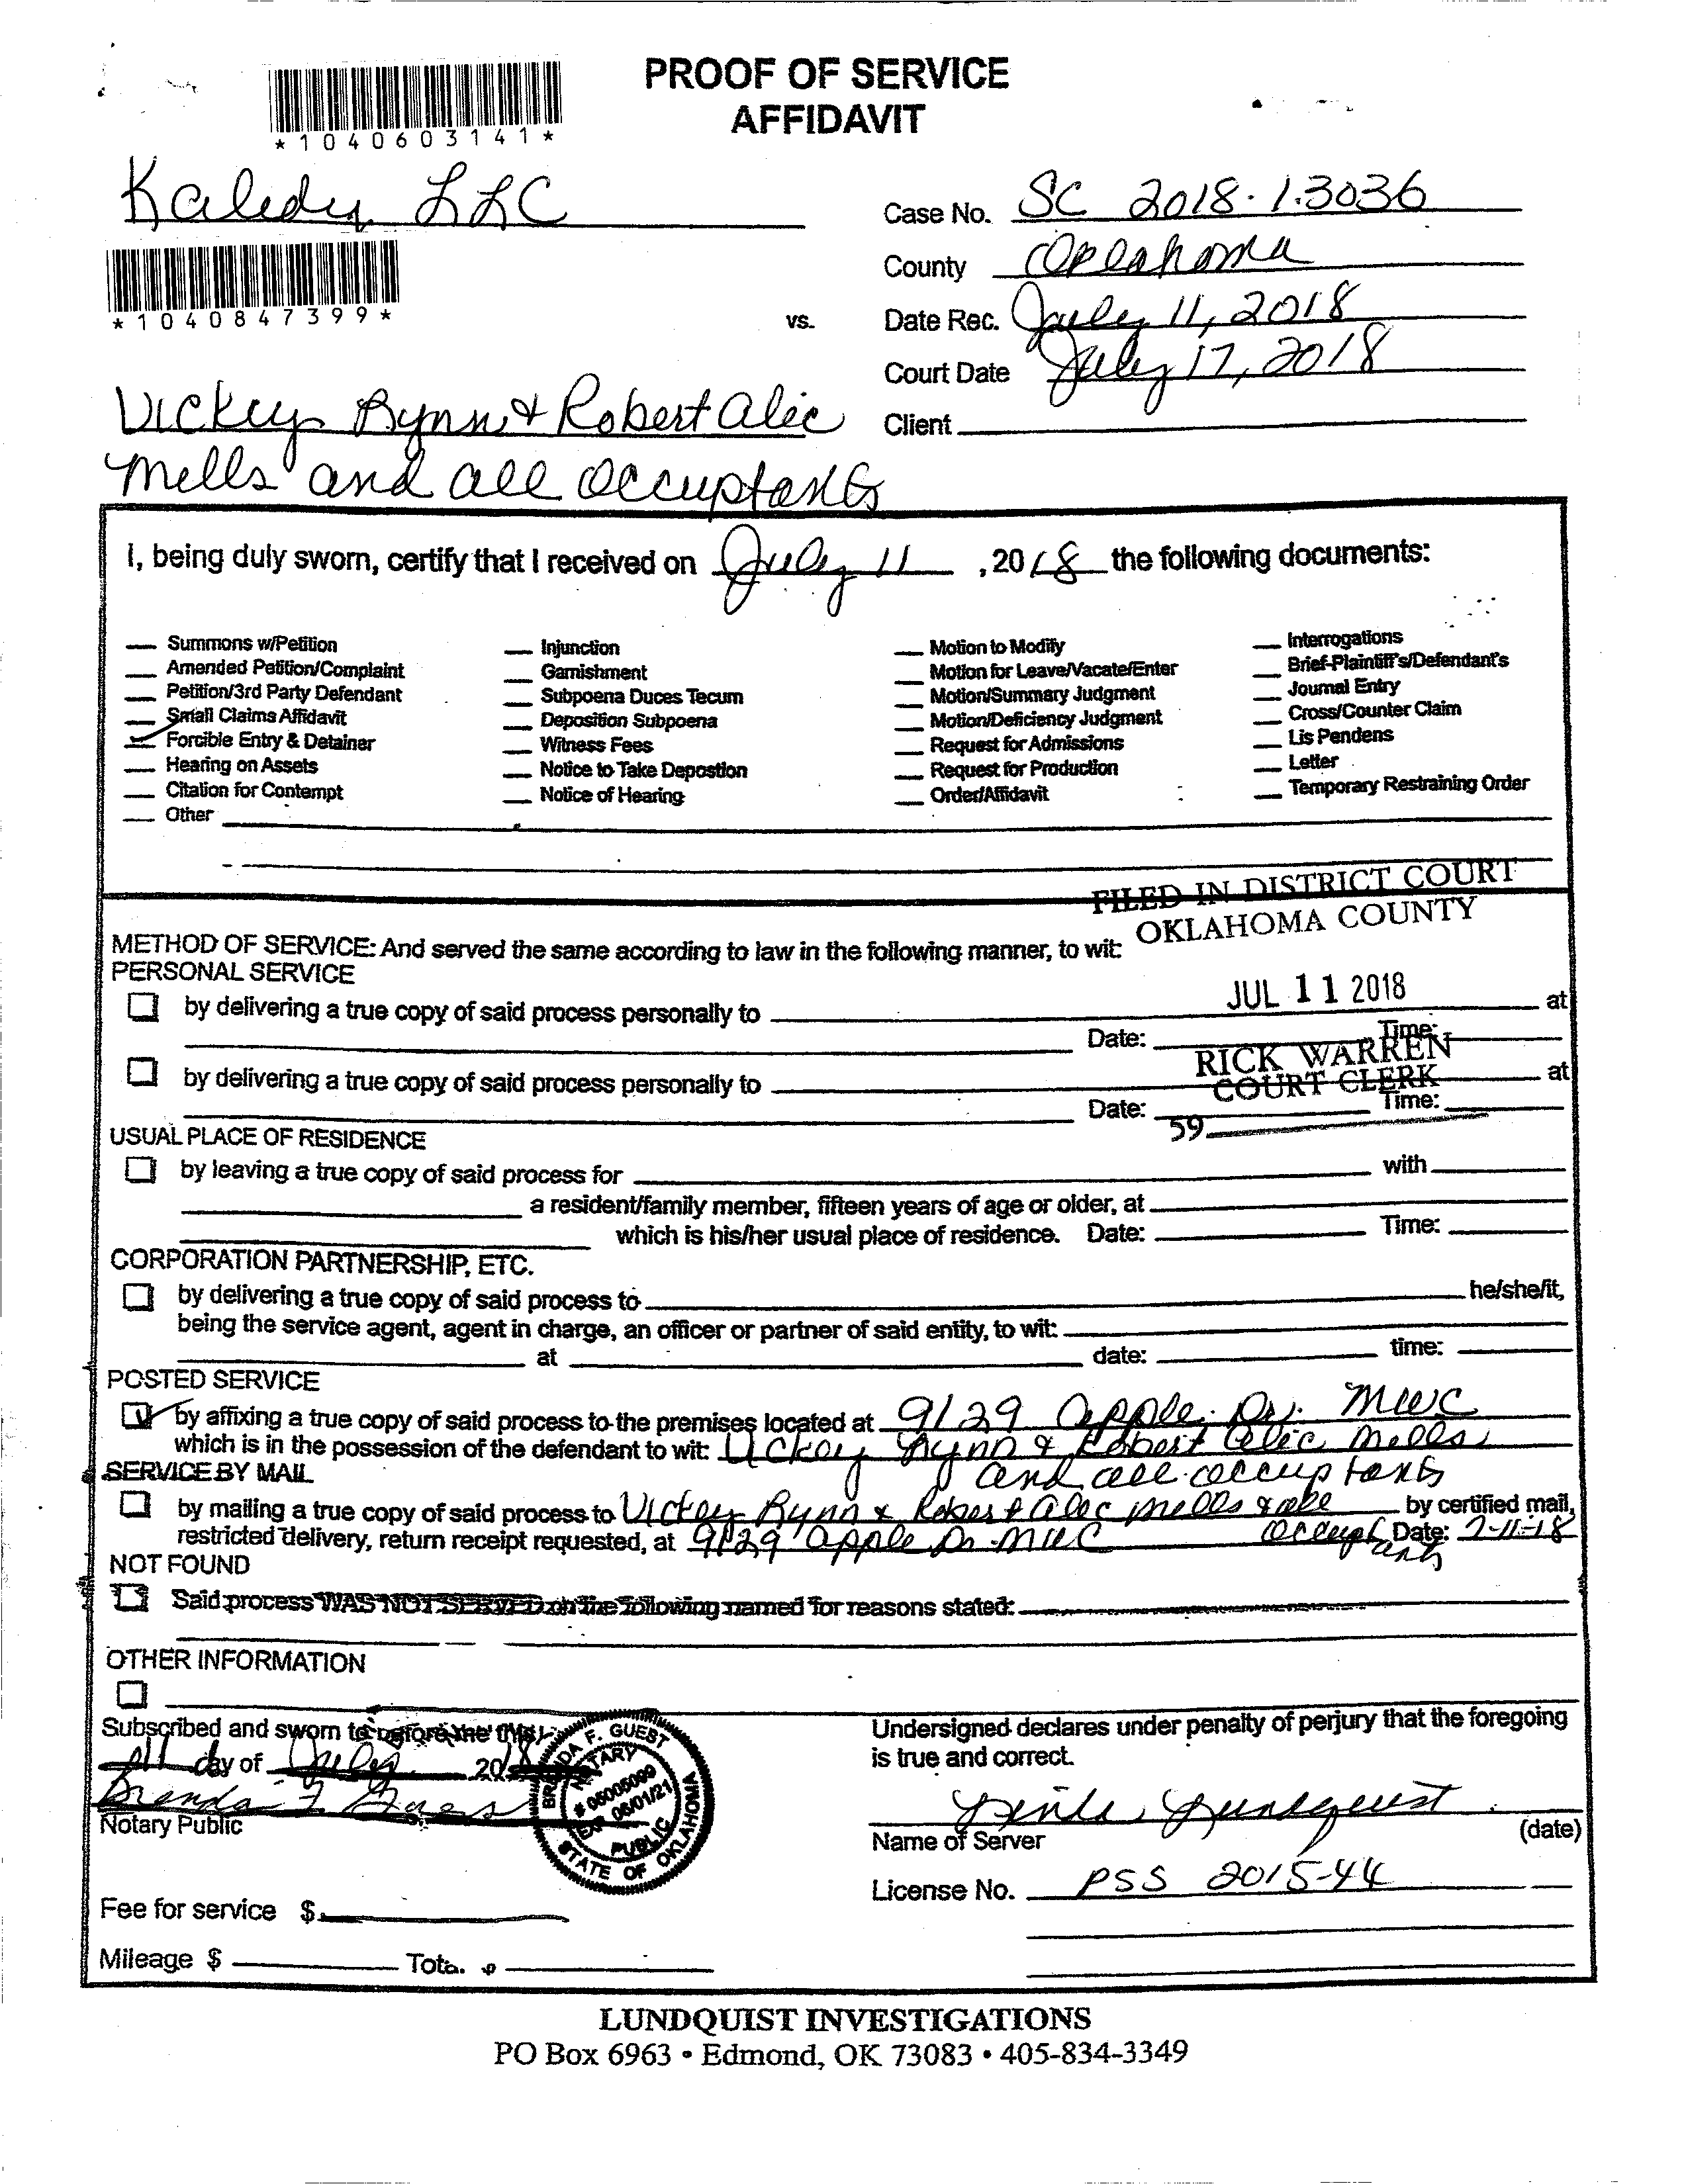 PROOF OF SERVICE
AFFIDAVIT
*1040603141*
Kaledy LLC
Case No. SC 2018-13036
County Oklahoma
*1040847399*
vs.
Date Rec. July 11, 2018
Court Date July 17, 2018
Vickey Rynn & Robert Alec
Client
Mells and all occuptants
I, being duly sworn, certify that I received on July 11, 2018 the following documents:
Summons w/Petition
Amended Petition/Complaint
Petition/3rd Party Defendant
Small Claims Affidavit
Forcible Entry & Detainer
Hearing on Assets
Citation for Contempt
Other
Injunction
Garnishment
Subpoena Duces Tecum
Deposition Subpoena
Witness Fees
Notice to Take Depostion
Notice of Hearing
Motion to Modify
Motion for Leave/Vacate/Enter
Motion/Summary Judgment
Motion/Deficiency Judgment
Request for Admissions
Request for Production
Order/Affidavit
Interrogations
Brief-Plaintiff's/Defendant's
Journal Entry
Cross/Counter Claim
Lis Pendens
Letter
Temporary Restraining Order
FILED IN DISTRICT COURT
OKLAHOMA COUNTY
METHOD OF SERVICE: And served the same according to law in the following manner, to wit:
PERSONAL SERVICE
JUL 11 2018
by delivering a true copy of said process personally to at
Date: Time:
RICK WARREN
COURT CLERK
by delivering a true copy of said process personally to at
Date: Time:
59
USUAL PLACE OF RESIDENCE
by leaving a true copy of said process for with
a resident/family member, fifteen years of age or older, at
which is his/her usual place of residence. Date: Time:
CORPORATION PARTNERSHIP, ETC.
by delivering a true copy of said process to he/she/it,
being the service agent, agent in charge, an officer or partner of said entity, to wit:
at date: time:
POSTED SERVICE
by affixing a true copy of said process to the premises located at 9129 Apple Dr. MWC
which is in the possession of the defendant to wit: Vickey Rynn & Robert Alec Mells
and all occuptants
SERVICE BY MAIL
by mailing a true copy of said process to Vickey Rynn & Robert Alec Mells & all by certified mail,
restricted delivery, return receipt requested, at 9129 Apple Dr MWC occuptants Date: 7-11-18
NOT FOUND
Said process WAS NOT SERVED on the following named for reasons stated:
OTHER INFORMATION
Subscribed and sworn to before me this
11 day of July 2018
Brenda F Guest
Notary Public
BRENDA F. GUEST
NOTARY
# 05005099
EXP. 06/01/21
PUBLIC
STATE OF OKLAHOMA
Undersigned declares under penalty of perjury that the foregoing
is true and correct.
Lundquist
Name of Server (date)
License No. PSS 2015-44
Fee for service $
Mileage $ Tota.
LUNDQUIST INVESTIGATIONS
PO Box 6963 • Edmond, OK 73083 • 405-834-3349